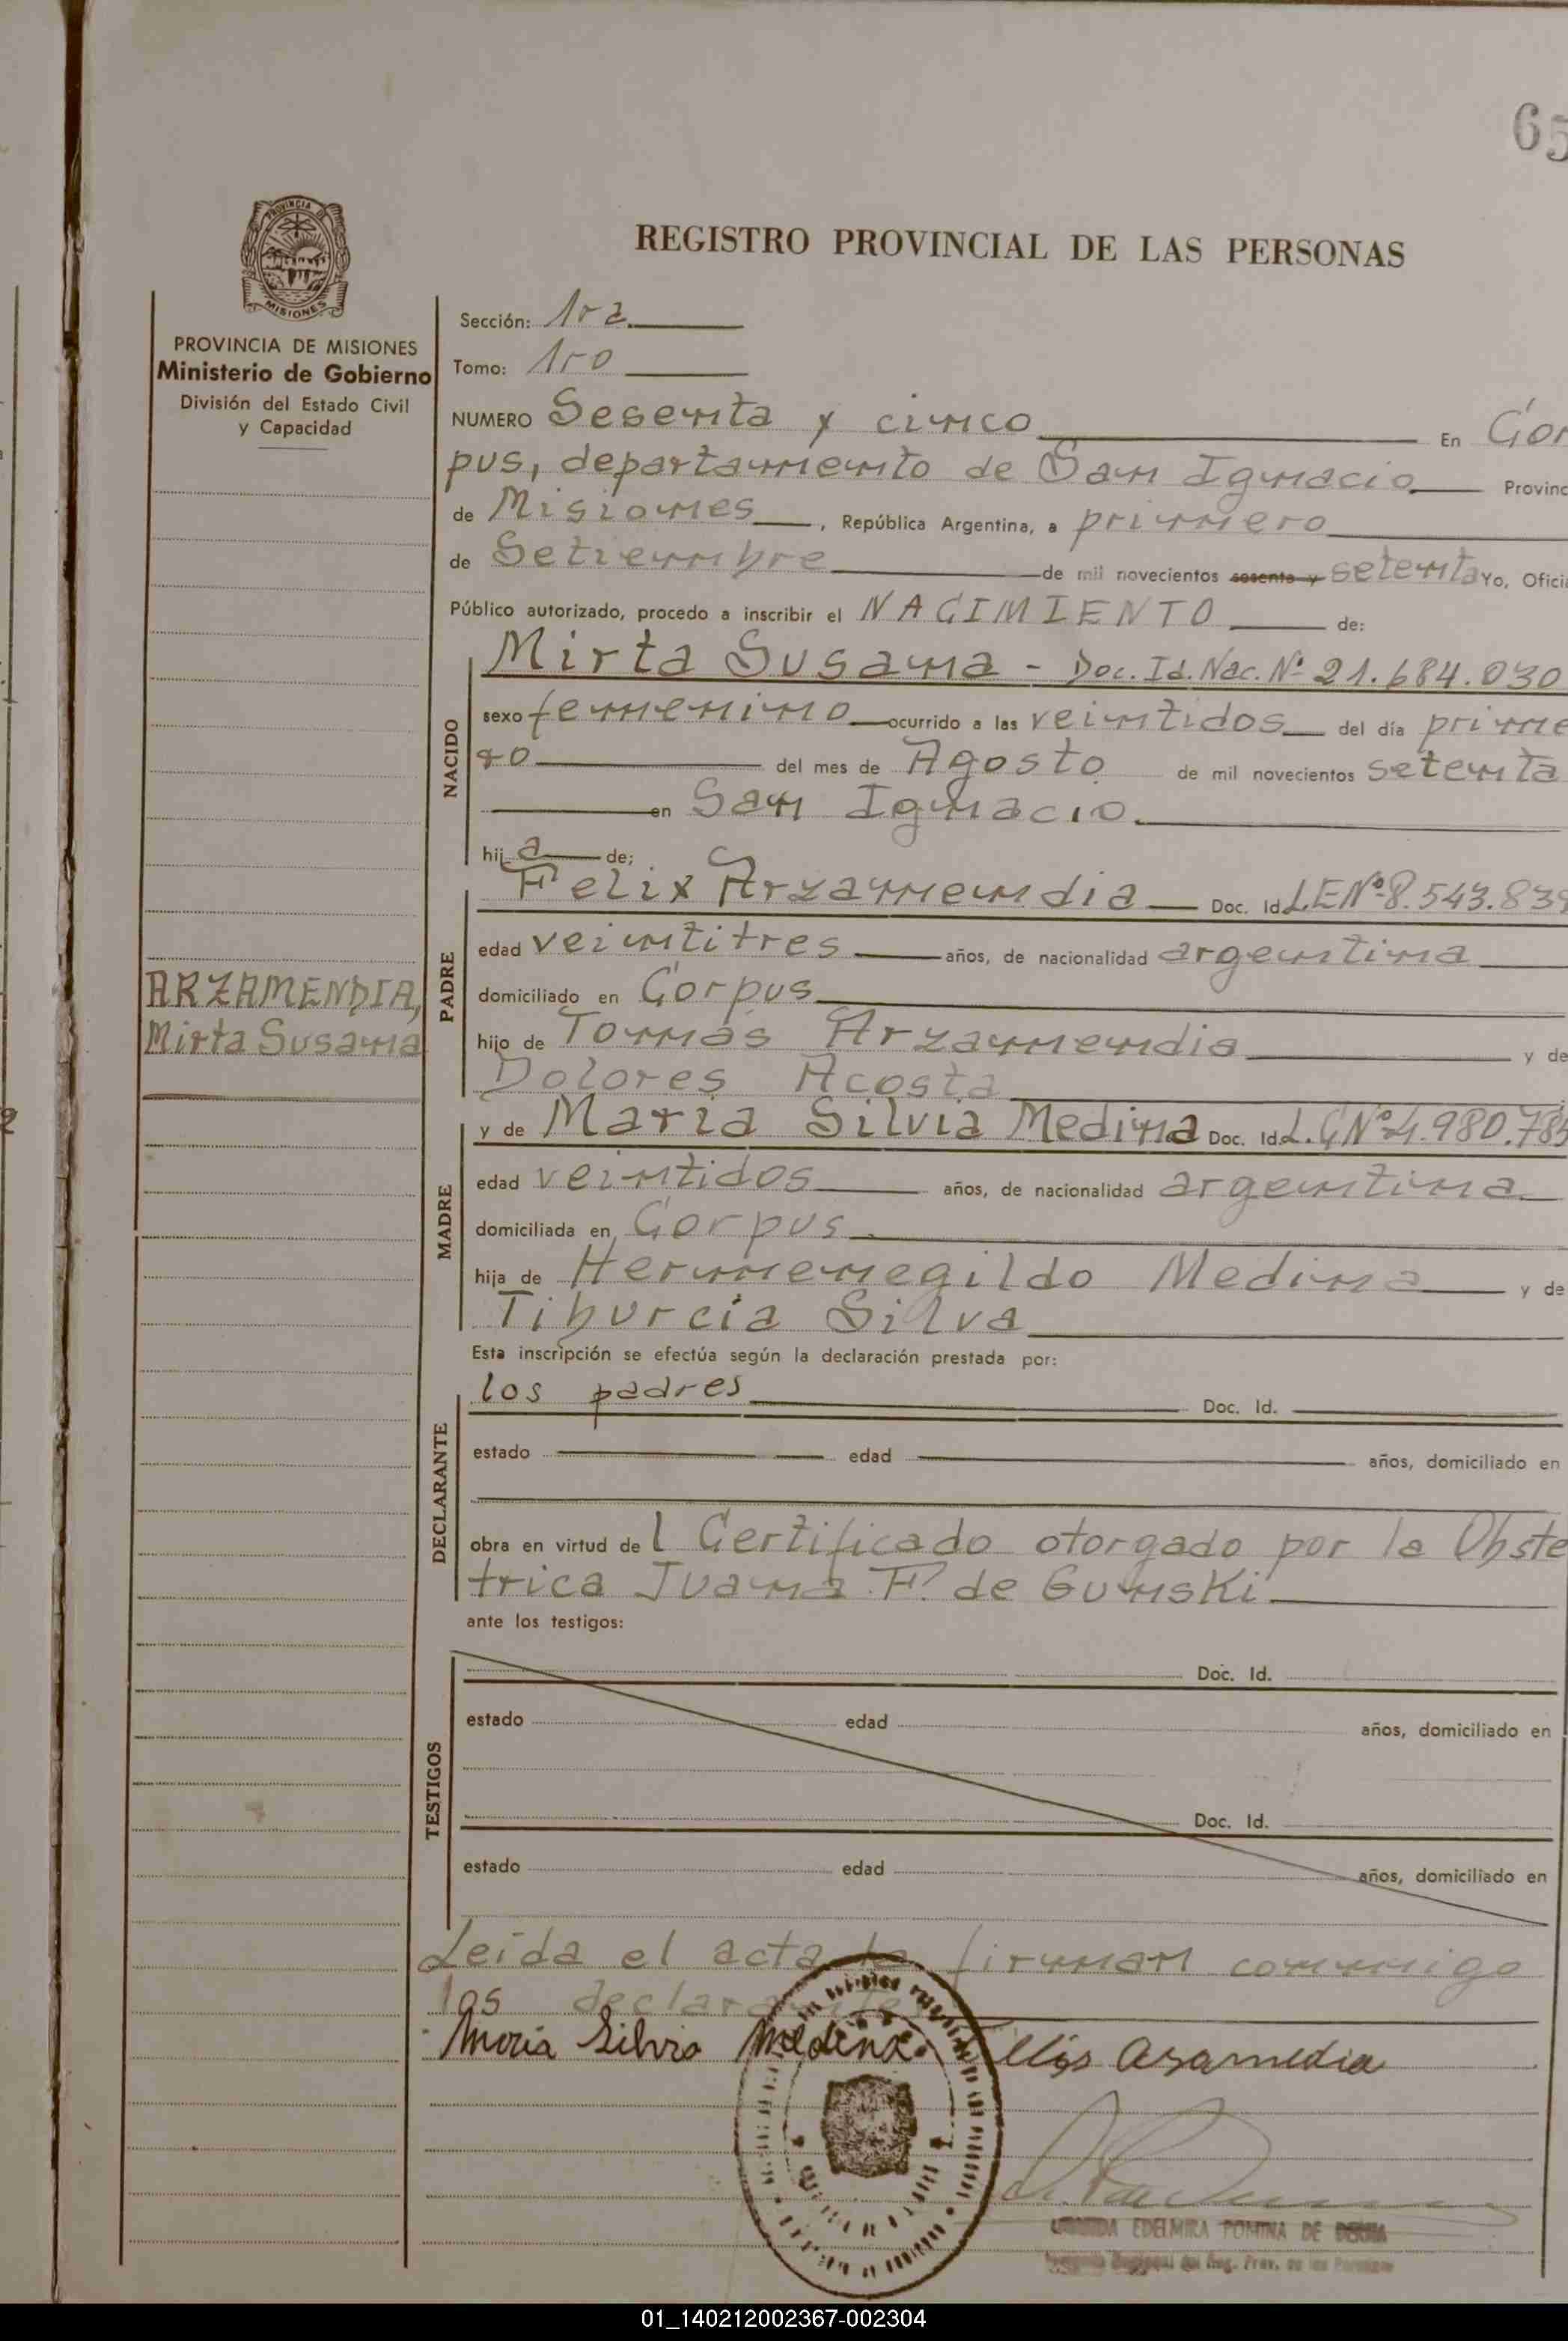 65
REGISTRO PROVINCIAL DE LAS PERSONAS
PROVINCIA DE
MISIONES
PROVINCIA DE MISIONES
Ministerio de Gobierno
División del Estado Civil
y Capacidad
ARZAMENDIA,
Mirta Susana
Sección: 1ra
Tomo: 1ro
NUMERO Sesenta y cinco En Cor
pus, departamento de San Ignacio Provinc
de Misiones, República Argentina, a primero
de Setiembre de mil novecientos sesenta y setenta Yo, Ofici
Público autorizado, procedo a inscribir el NACIMIENTO de:
NACIDO
Mirta Susana - Doc. Id. Nac. Nº 21.684.030
sexo femenino ocurrido a las veintidos del día prime
ro del mes de Agosto de mil novecientos setenta
en San Ignacio.
hij a de;
PADRE
Felix Arzamendia Doc. Id. L.E Nº 8.543.839
edad veintitres años, de nacionalidad argentina
domiciliado en Corpus
hijo de Tomás Arzamendia y de
Dolores Acosta
MADRE
y de Maria Silvia Medina Doc. Id. L.C Nº 4.980.785
edad veintidos años, de nacionalidad argentina
domiciliada en Corpus
hija de Hermenegildo Medina y de
Tiburcia Silva
Esta inscripción se efectúa según la declaración prestada por:
DECLARANTE
los padres Doc. Id.
estado edad años, domiciliado en
obra en virtud de l Certificado otorgado por la Obste
trica Juana F. de Gunski
ante los testigos:
TESTIGOS
Doc. Id.
estado edad años, domiciliado en
Doc. Id.
estado edad años, domiciliado en
Leída el acta la firman conmigo
los declarantes
Maria Silvia Medina
EDELMIRA POMINA DE
Reg. Prov. de las Personas
01_140212002367-002304